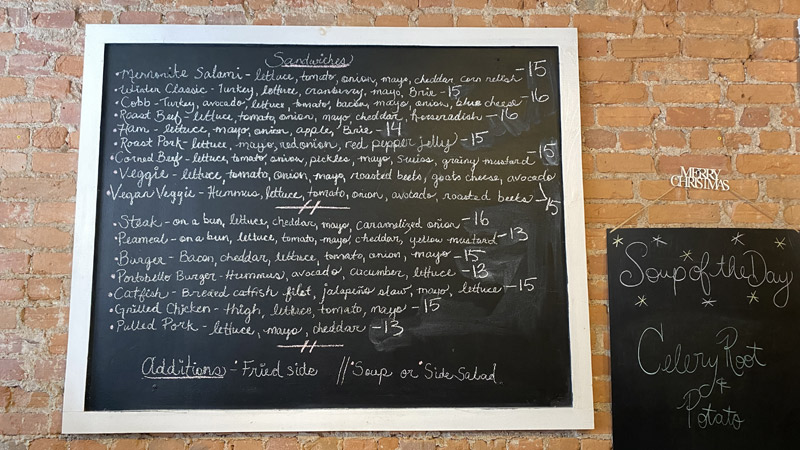 Sandwiches
• Mennonite Salami - lettuce, tomato, onion, mayo, cheddar corn relish - 15
• Winter Classic - Turkey, lettuce, cranberry, mayo, Brie - 15
• Cobb - Turkey, avocado, lettuce, tomato, bacon, mayo, onion, blue cheese - 16
• Roast Beef - lettuce, tomato, onion, mayo, cheddar, horseradish - 16
• Ham - lettuce, mayo, onion, apple, Brie - 14
• Roast Pork - lettuce, mayo, red onion, red pepper jelly - 15
• Corned Beef - lettuce, tomato, onion, pickles, mayo, Swiss, grainy mustard - 15
• Veggie - lettuce, tomato, onion, mayo, roasted beets, goats cheese, avocado
• Vegan Veggie - Hummus, lettuce, tomato, onion, avocado, roasted beets - 15
//
• Steak - on a bun, lettuce, cheddar, mayo, caramelized onion - 16
• Peameal - on a bun, lettuce, tomato, mayo, cheddar, yellow mustard - 13
• Burger - Bacon, cheddar, lettuce, tomato, onion, mayo - 15
• Portobello Burger - Hummus, avocado, cucumber, lettuce - 13
• Catfish - Breaded catfish filet, jalapeño slaw, mayo, lettuce - 15
• Grilled Chicken - thigh, lettuce, tomato, mayo - 15
• Pulled Pork - lettuce, mayo, cheddar - 13
//
Additions - • Fried side // • Soup or • Side Salad
MERRY
CHRISTMAS
Soup of the Day
Celery Root
&
Potato